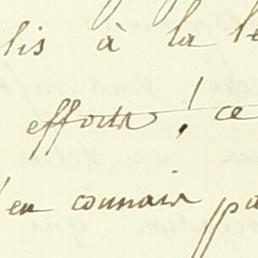 lis à la le
efforts ! ce
en connais pa